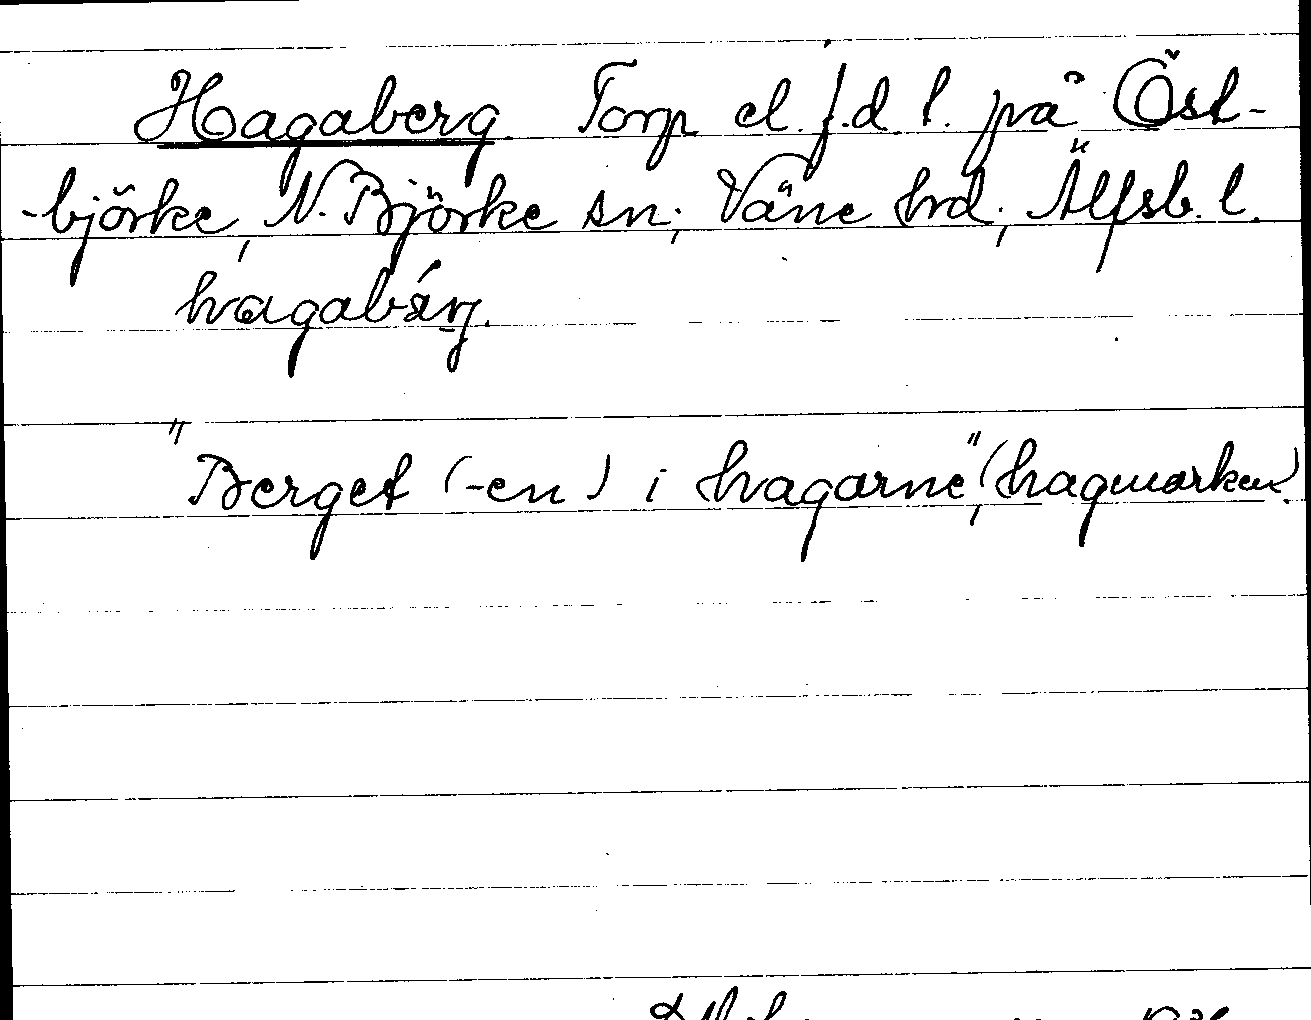 Hagaberg. Torp el. f.d. l. på Öst-
-björke, N. Björke sn; Väne hrd; Älfsb. l.
hagabárj.
"Berget (-en) i hagarne", (hagmarken.)